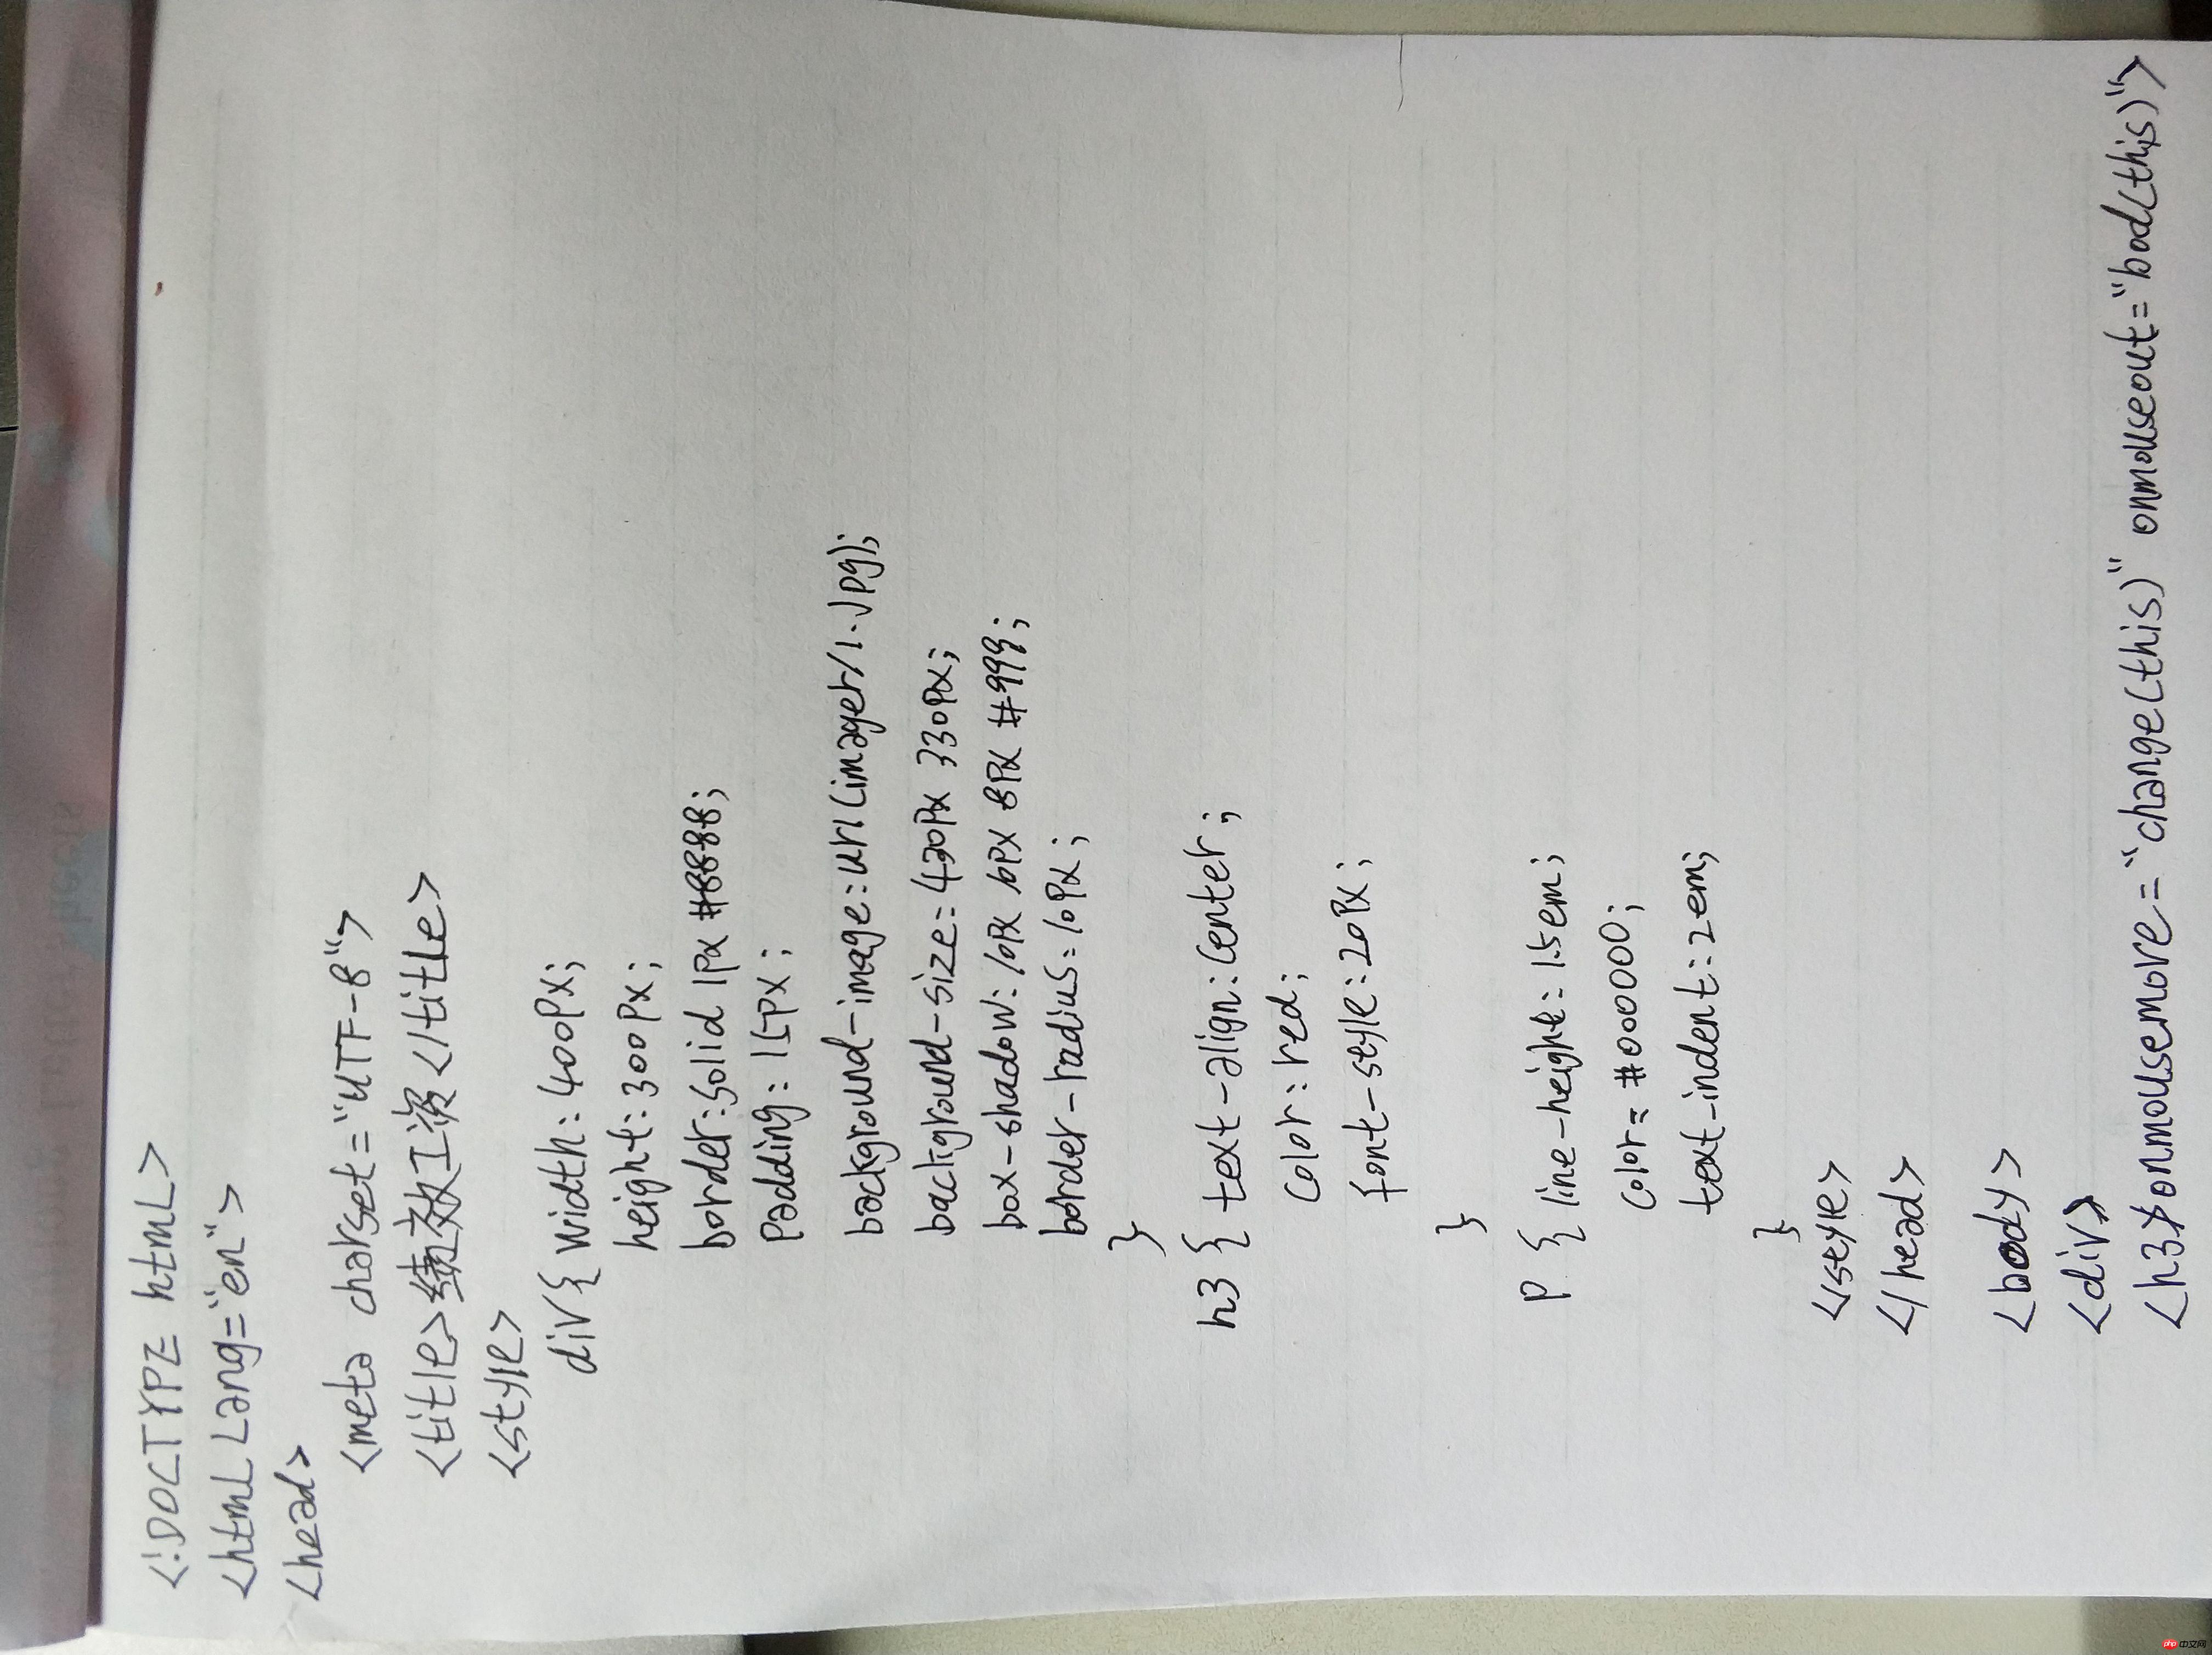 <!DOCTYPE html>
<html Lang="en">
<head>
<meta charset="UTF-8">
<title>绩效工资</title>
<style>
div{ width:400px;
height:300px;
border:solid 1px #8888;
padding:15px;
background-image:url(images/1.jpg);
background-size:420px 330px;
box-shadow:10px 10px 8px #999;
border-radius:10px;
}
h3{ text-align:center;
color:red;
font-style:20px;
}
P{ line-height:1.5em;
color:#000000;
text-indent:2em;
}
</style>
</head>
<body>
<div>
<h3 onmousemove="change(this)" onmouseout="bad(this)">
php 中文网